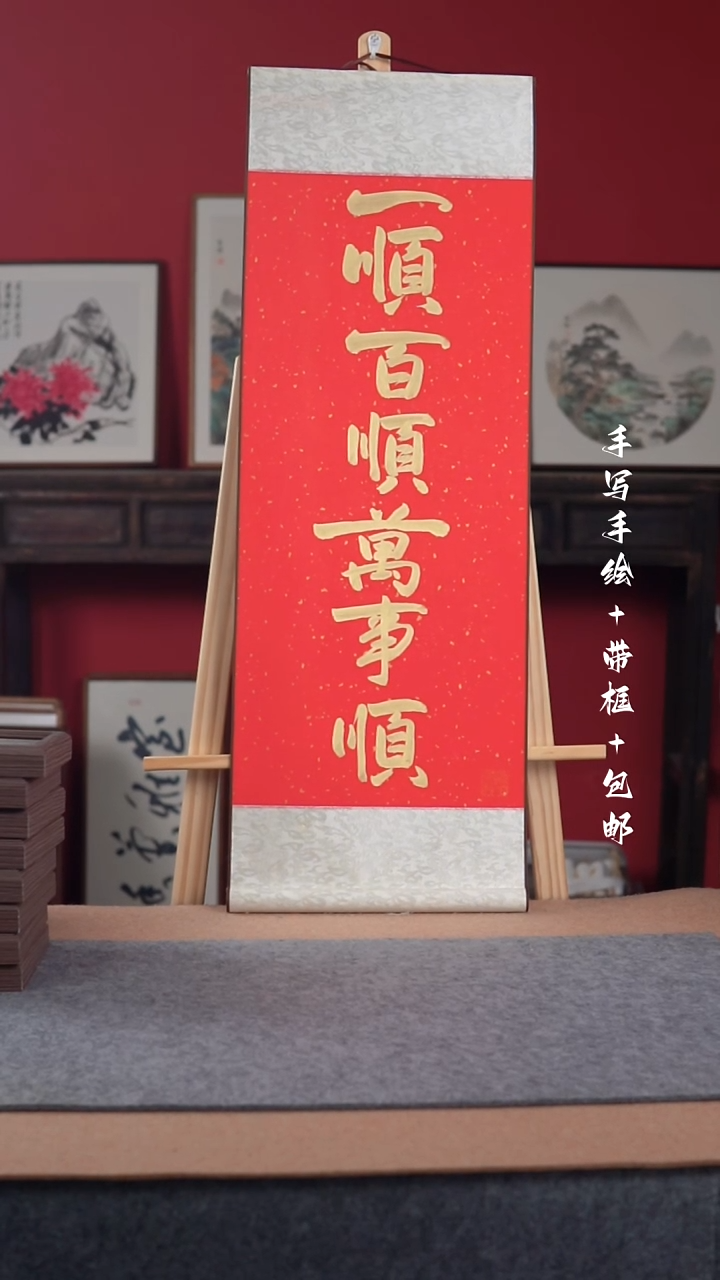 一順百順萬事順
手写手绘+带框+包邮